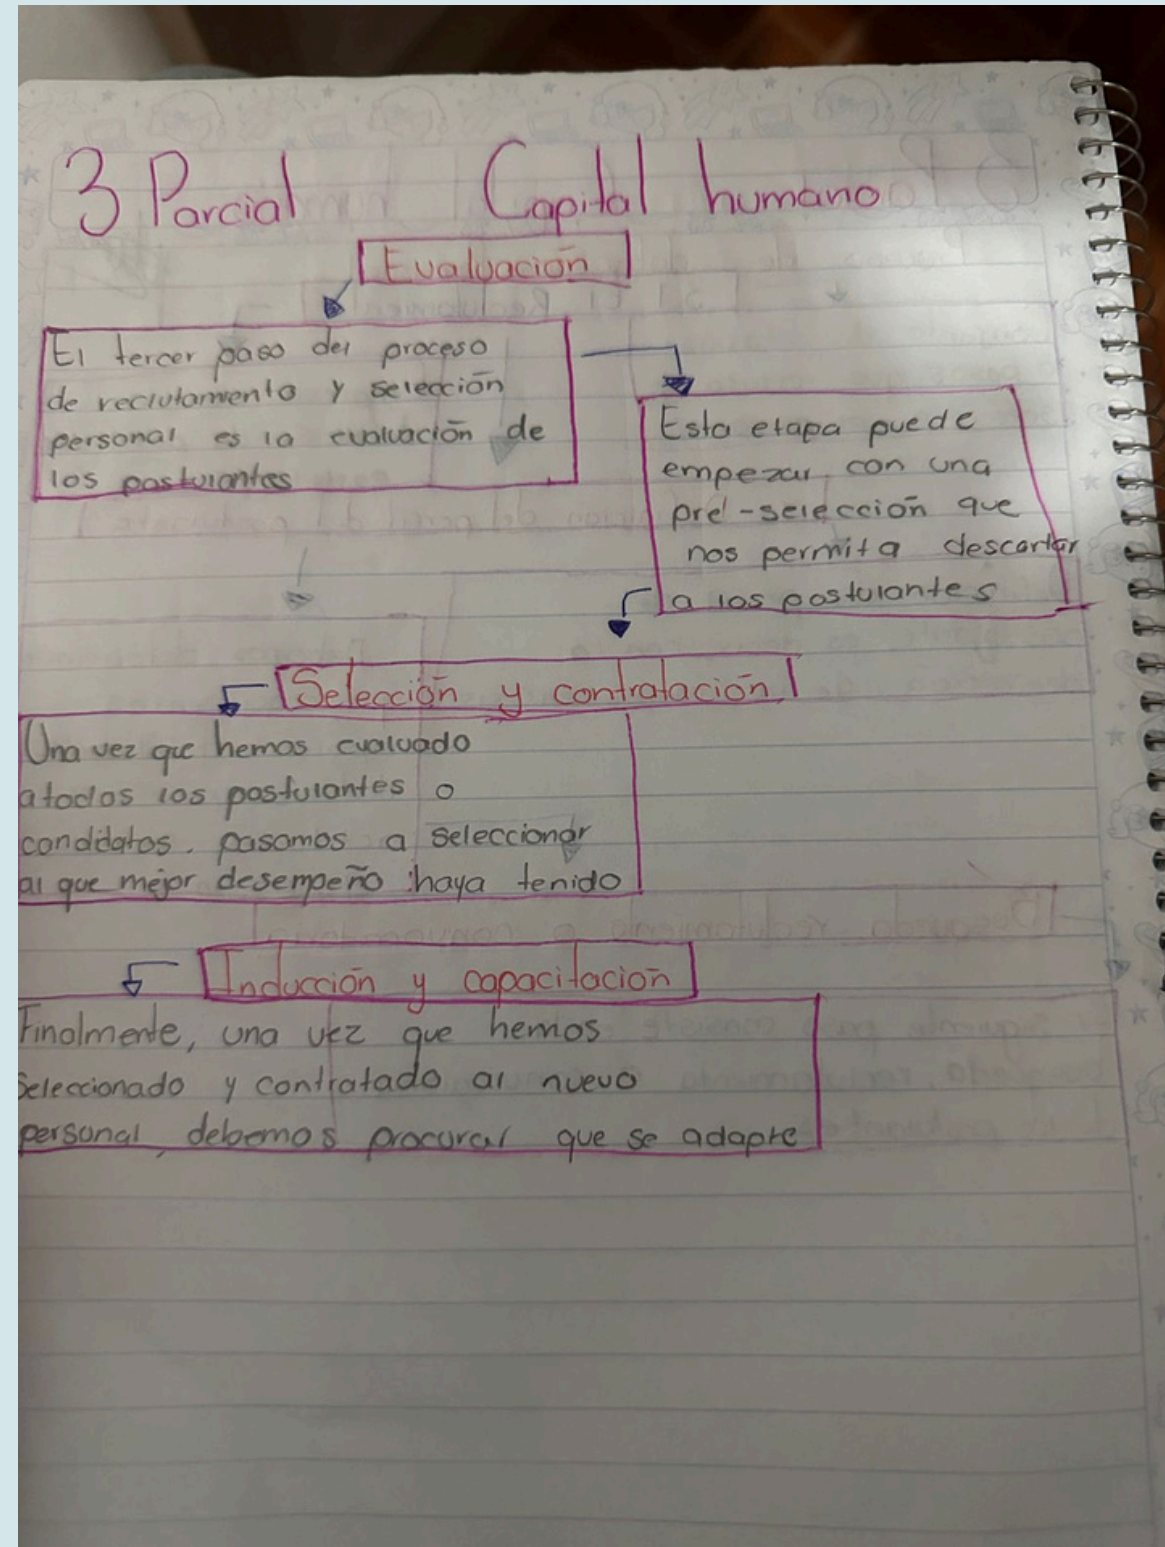 3 Parcial Capital humano
Evaluación
El tercer paso del proceso
de reclutamiento y selección
personal es la evaluación de
los postulantes
Esta etapa puede
empezar con una
pre-selección que
nos permita descartar
a los postulantes
Selección y contratación
Una vez que hemos evaluado
a todos los postulantes o
candidatos. pasamos a seleccionar
al que mejor desempeño haya tenido
Inducción y capacitación
Finalmente, una vez que hemos
seleccionado y contratado al nuevo
personal, debemos procurar que se adapte